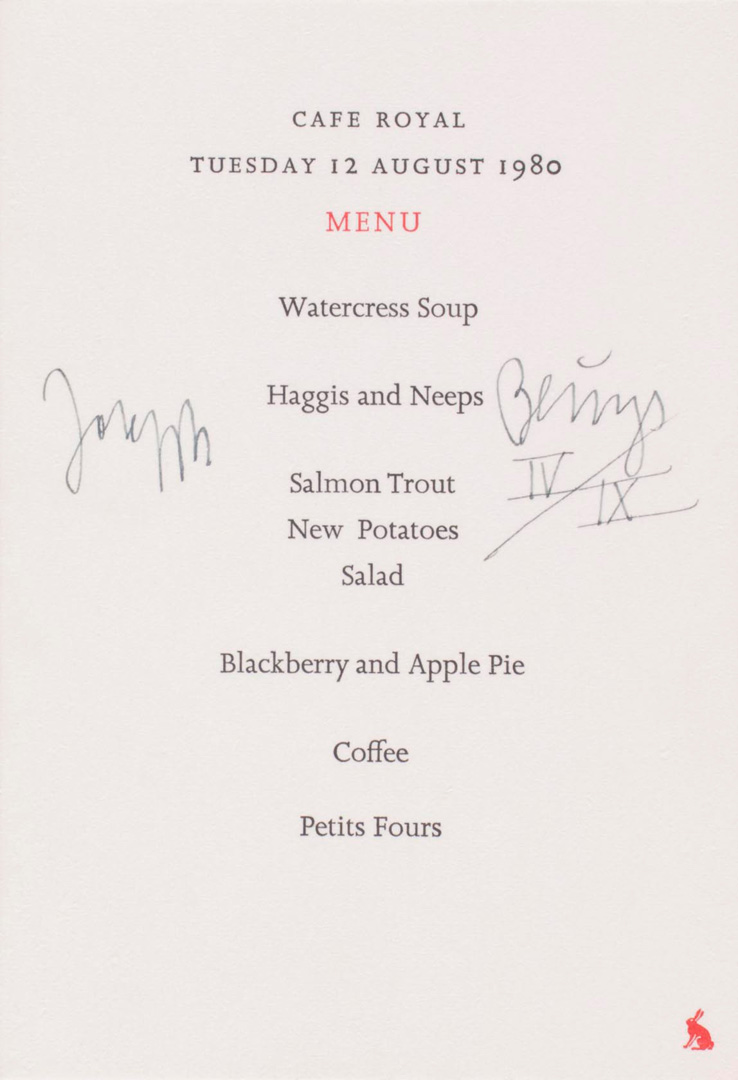 CAFE ROYAL
TUESDAY 12 AUGUST 1980
MENU
Watercress Soup
Haggis and Neeps
Joseph Beuys
IV/IX
Salmon Trout
New Potatoes
Salad
Blackberry and Apple Pie
Coffee
Petits Fours